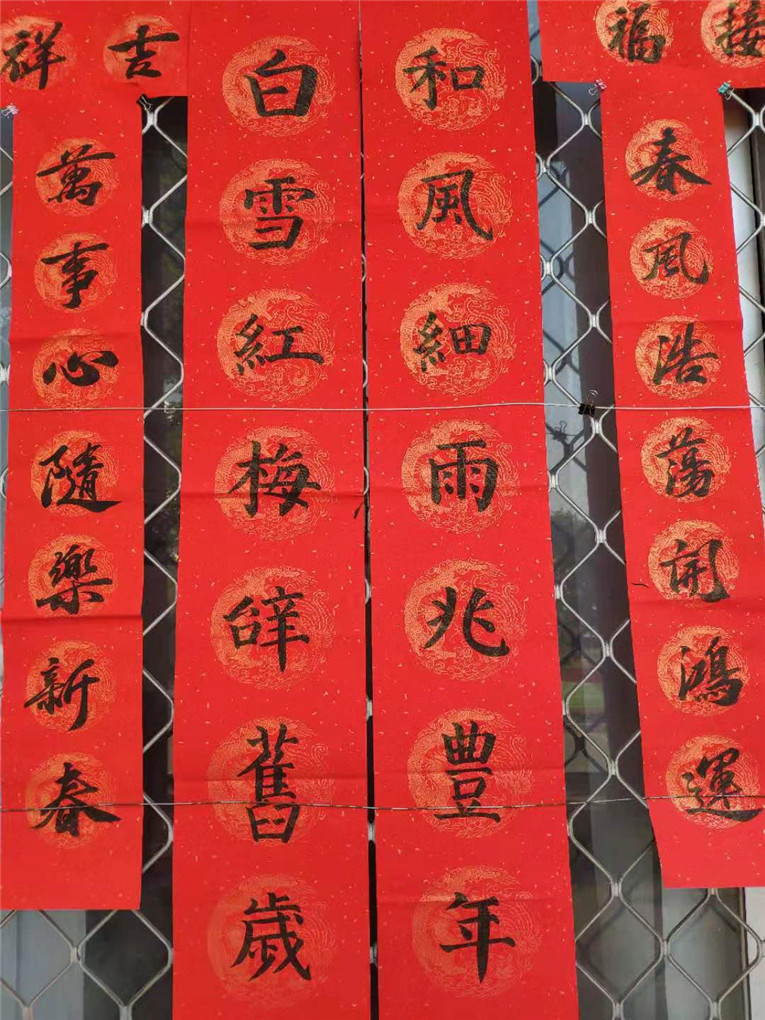 接福
春風浩蕩開鴻運
和風細雨兆豊年
白雪紅梅辝舊歲
吉祥
萬事心隨樂新春